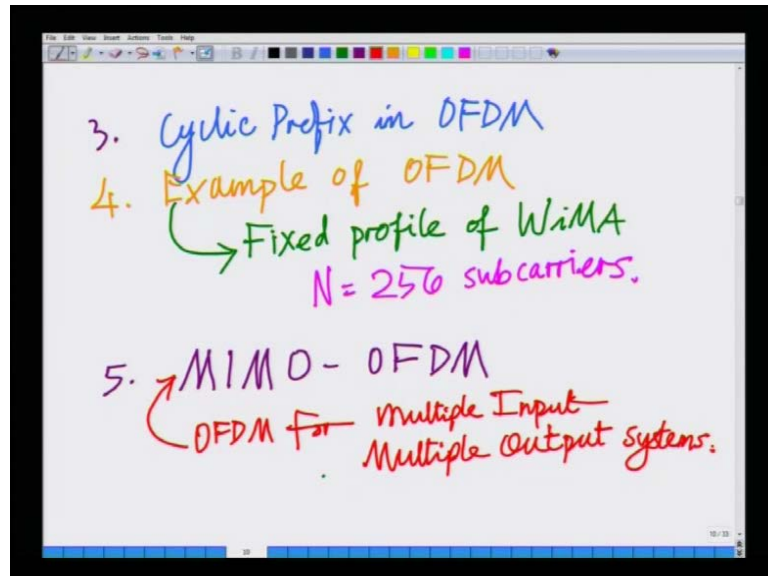 File Edit View Insert Actions Tools Help
3. Cyclic Prefix in OFDM
4. Example of OFDM
Fixed profile of WiMA
N = 256 subcarriers.
5. MIMO - OFDM
OFDM For Multiple Input
Multiple Output Systems.